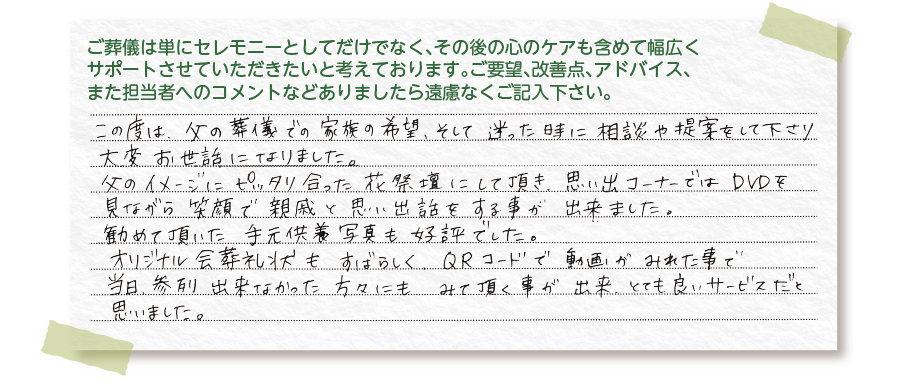 ご葬儀は単にセレモニーとしてだけでなく、その後の心のケアも含めて幅広く
サポートさせていただきたいと考えております。ご要望、改善点、アドバイス、
また担当者へのコメントなどありましたら遠慮なくご記入下さい。
この度は、父の葬儀での家族の希望、そして迷った時に相談や提案をして下さり
大変お世話になりました。
父のイメージにピッタリ合った花祭壇にして頂き、思い出コーナーではDVDを
見ながら笑顔で親戚と思い出話をする事が出来ました。
勧めて頂いた手元供養写真も好評でした。
オリジナル会葬礼状もすばらしく、QRコードで動画がみれた事で
当日、参列出来なかった方々にもみて頂く事が出来、とても良いサービスだと
思いました。